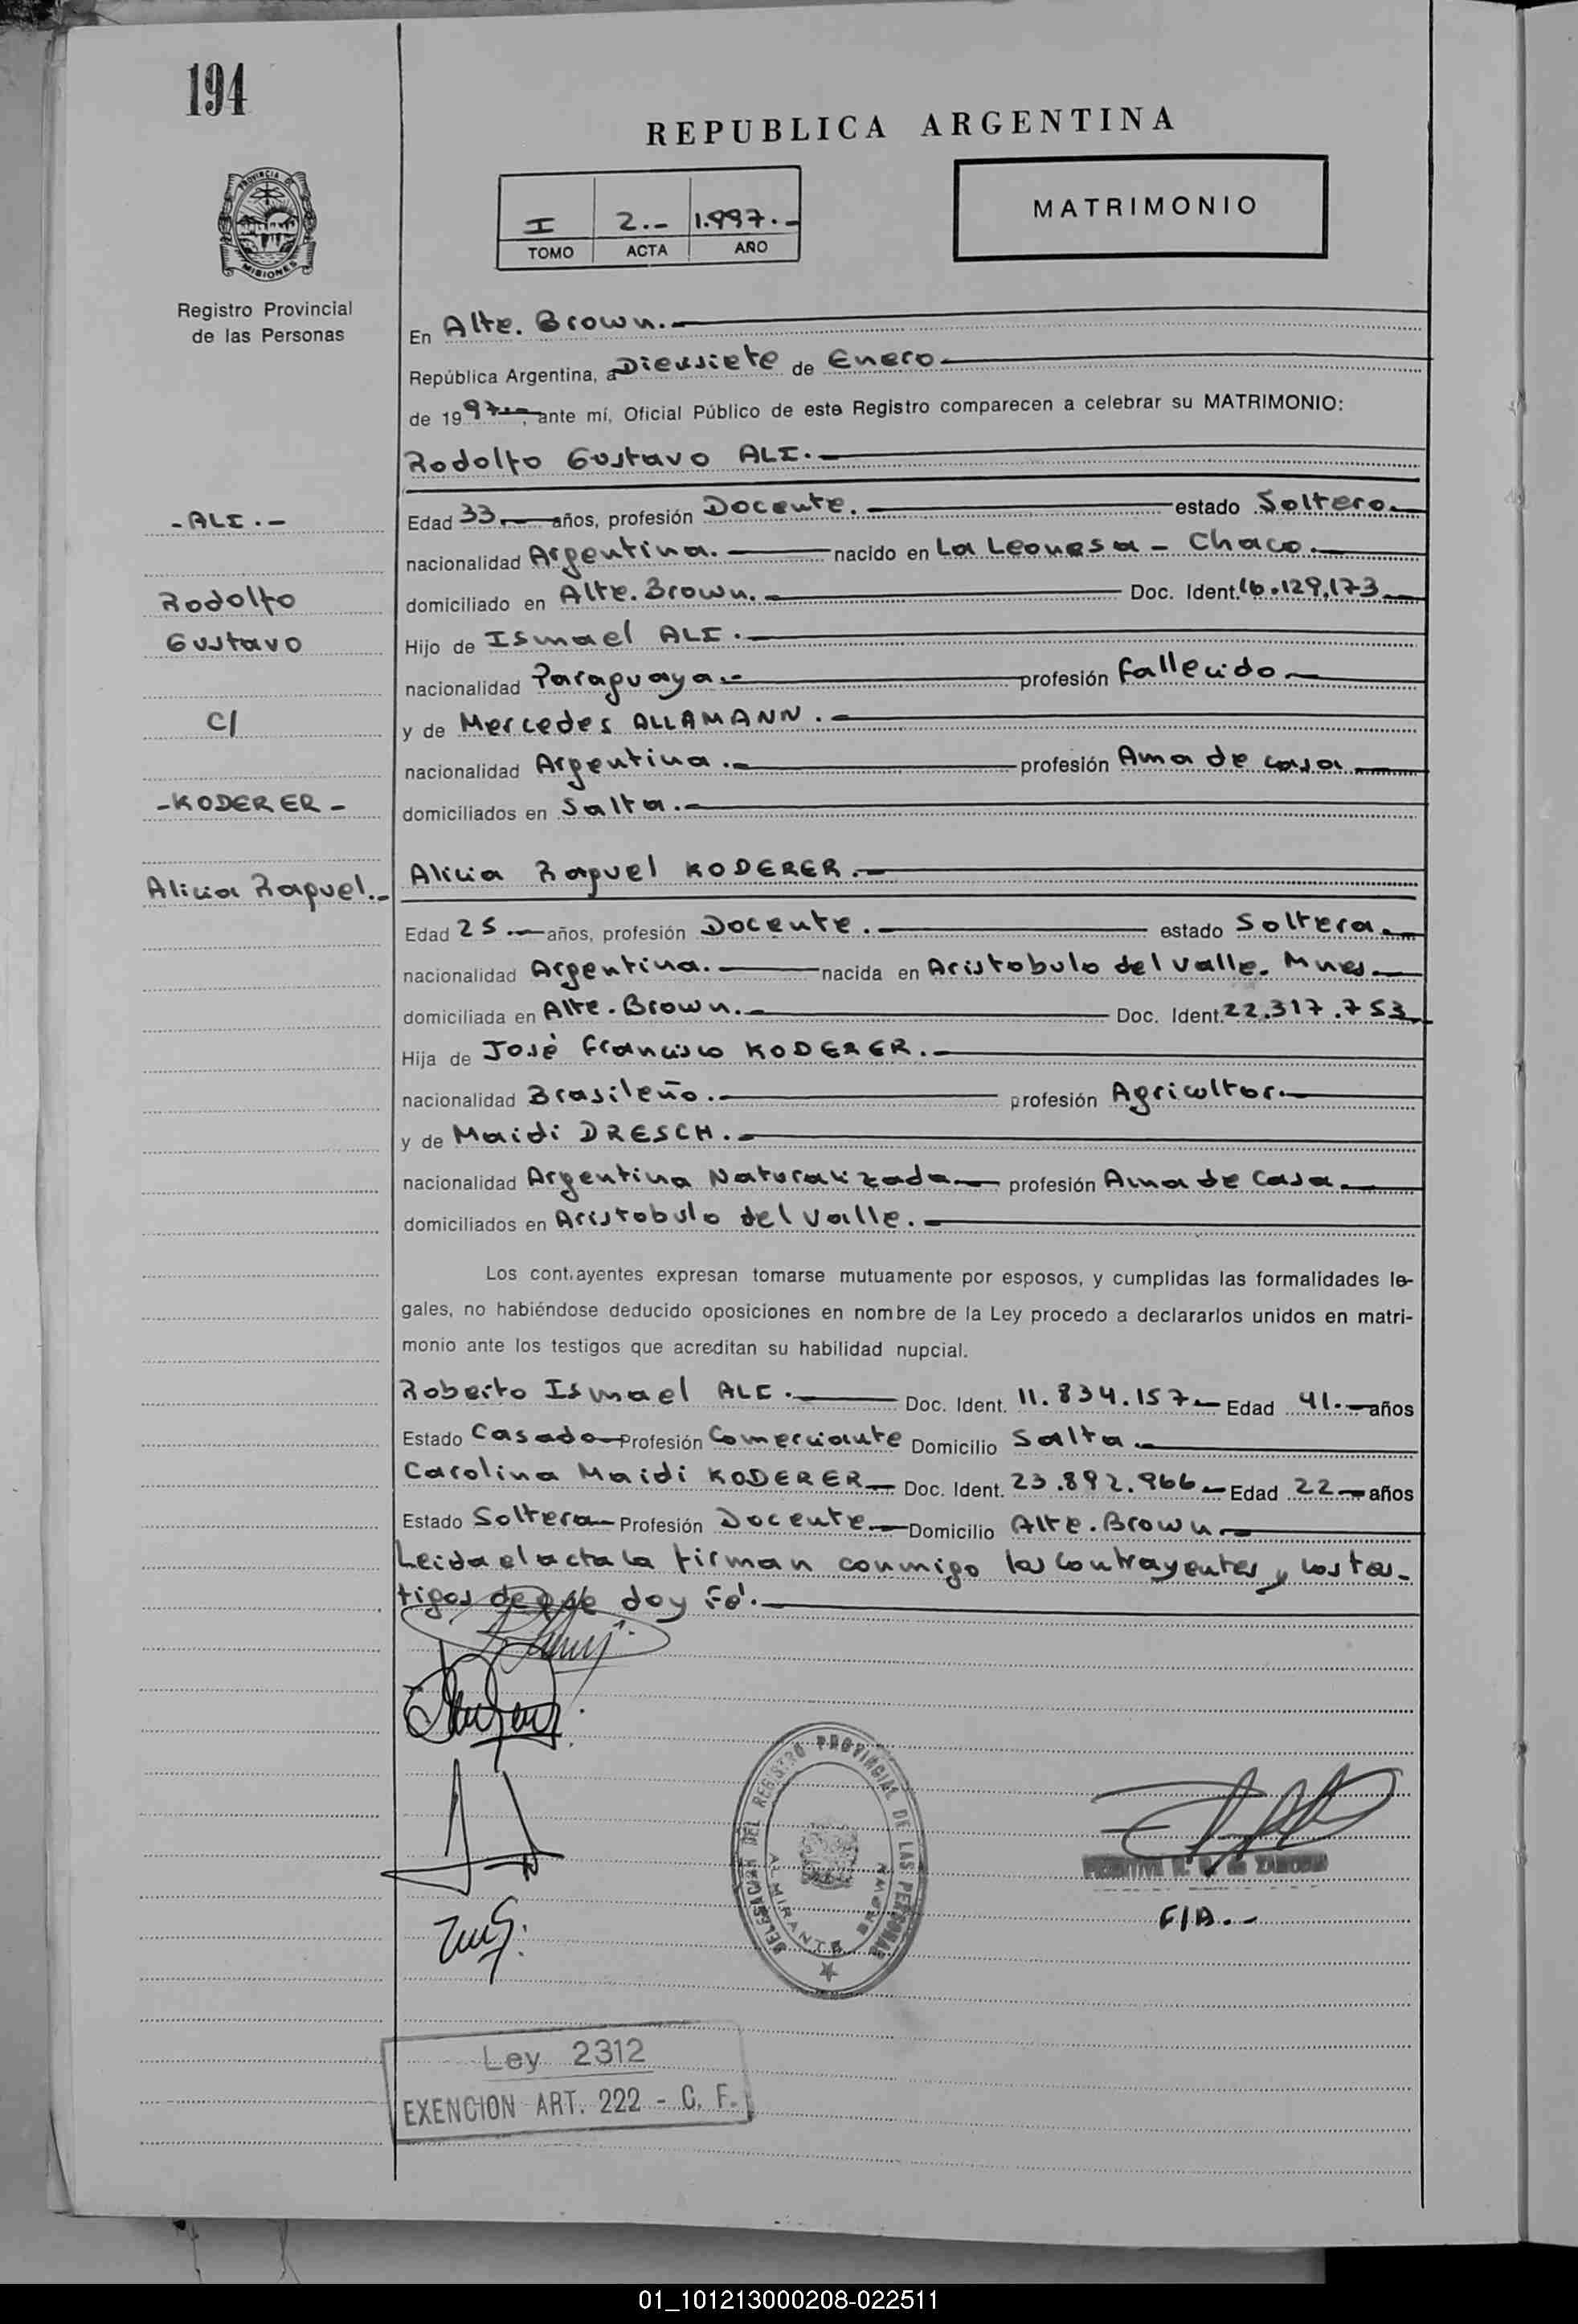 194
REPUBLICA ARGENTINA
PROVINCIA DE
MISIONES
Registro Provincial
de las Personas
I 2.- 1.997.-
TOMO ACTA AÑO
MATRIMONIO
En Alte. Brown.-
República Argentina, a Diecisiete de Enero
de 1997.-, ante mí, Oficial Público de este Registro comparecen a celebrar su MATRIMONIO:
Rodolfo Gustavo ALI.-
-ALI.-
Edad 33.- años, profesión Docente.- estado Soltero.-
nacionalidad Argentina.- nacido en La Leonesa - Chaco.-
Rodolfo
domiciliado en Alte. Brown.- Doc. Ident. 16.129.173.-
Gustavo
Hijo de Ismael ALI.-
nacionalidad Paraguaya.- profesión fallecido.-
C/
y de Mercedes ALLAMANN.-
nacionalidad Argentina.- profesión Ama de casa.-
-KODERER-
domiciliados en Salta.-
Alicia Raquel.-
Alicia Raquel KODERER.-
Edad 25.- años, profesión Docente.- estado Soltera.-
nacionalidad Argentina.- nacida en Aristobulo del Valle. Mnes.-
domiciliada en Alte. Brown.- Doc. Ident. 22.317.753.-
Hija de José Francisco KODERER.-
nacionalidad Brasileño.- profesión Agricultor.-
y de Maidi DRESCH.-
nacionalidad Argentina Naturalizada.- profesión Ama de Casa.-
domiciliados en Aristobulo del Valle.-
Los contrayentes expresan tomarse mutuamente por esposos, y cumplidas las formalidades le-
gales, no habiéndose deducido oposiciones en nombre de la Ley procedo a declararlos unidos en matri-
monio ante los testigos que acreditan su habilidad nupcial.
Roberto Ismael ALI.- Doc. Ident. 11.834.157.- Edad 41.- años
Estado Casado Profesión Comerciante Domicilio Salta.-
Carolina Maidi KODERER- Doc. Ident. 23.892.966.- Edad 22.- años
Estado Soltera- Profesión Docente.- Domicilio Alte. Brown.-
Leida el acta la firman conmigo los contrayentes y los tes-
tigos de que doy Fé.-
DELEGACION DEL REGISTRO PROVINCIAL DE LAS PERSONAS
ALMIRANTE BROWN
F/A.-
Ley 2312
EXENCION ART. 222 - C. F.
01_101213000208-022511